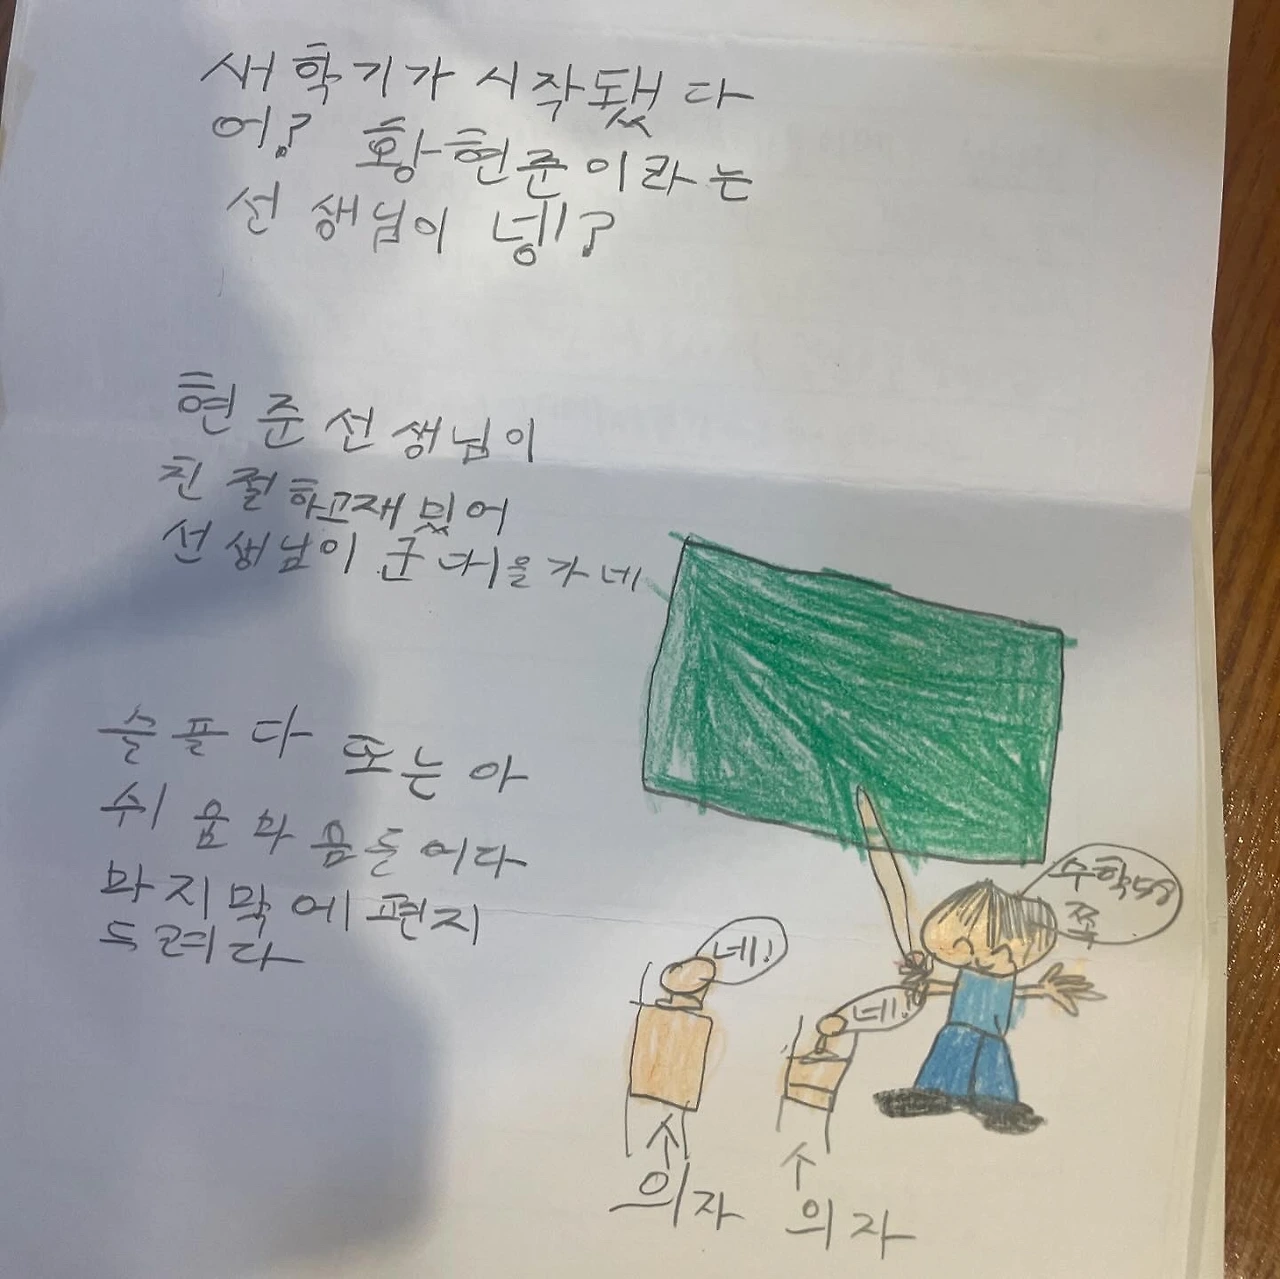 새학기가 시작됐다
어? 황현준이라는
선생님이 넹?
현준선생님이
친절하고재밌어
선생님이 군대을가네
슬플다 또는아
쉬움마음들이다
마지막에편지
드려다
수학58
쪽
네!
네!
의자
의자